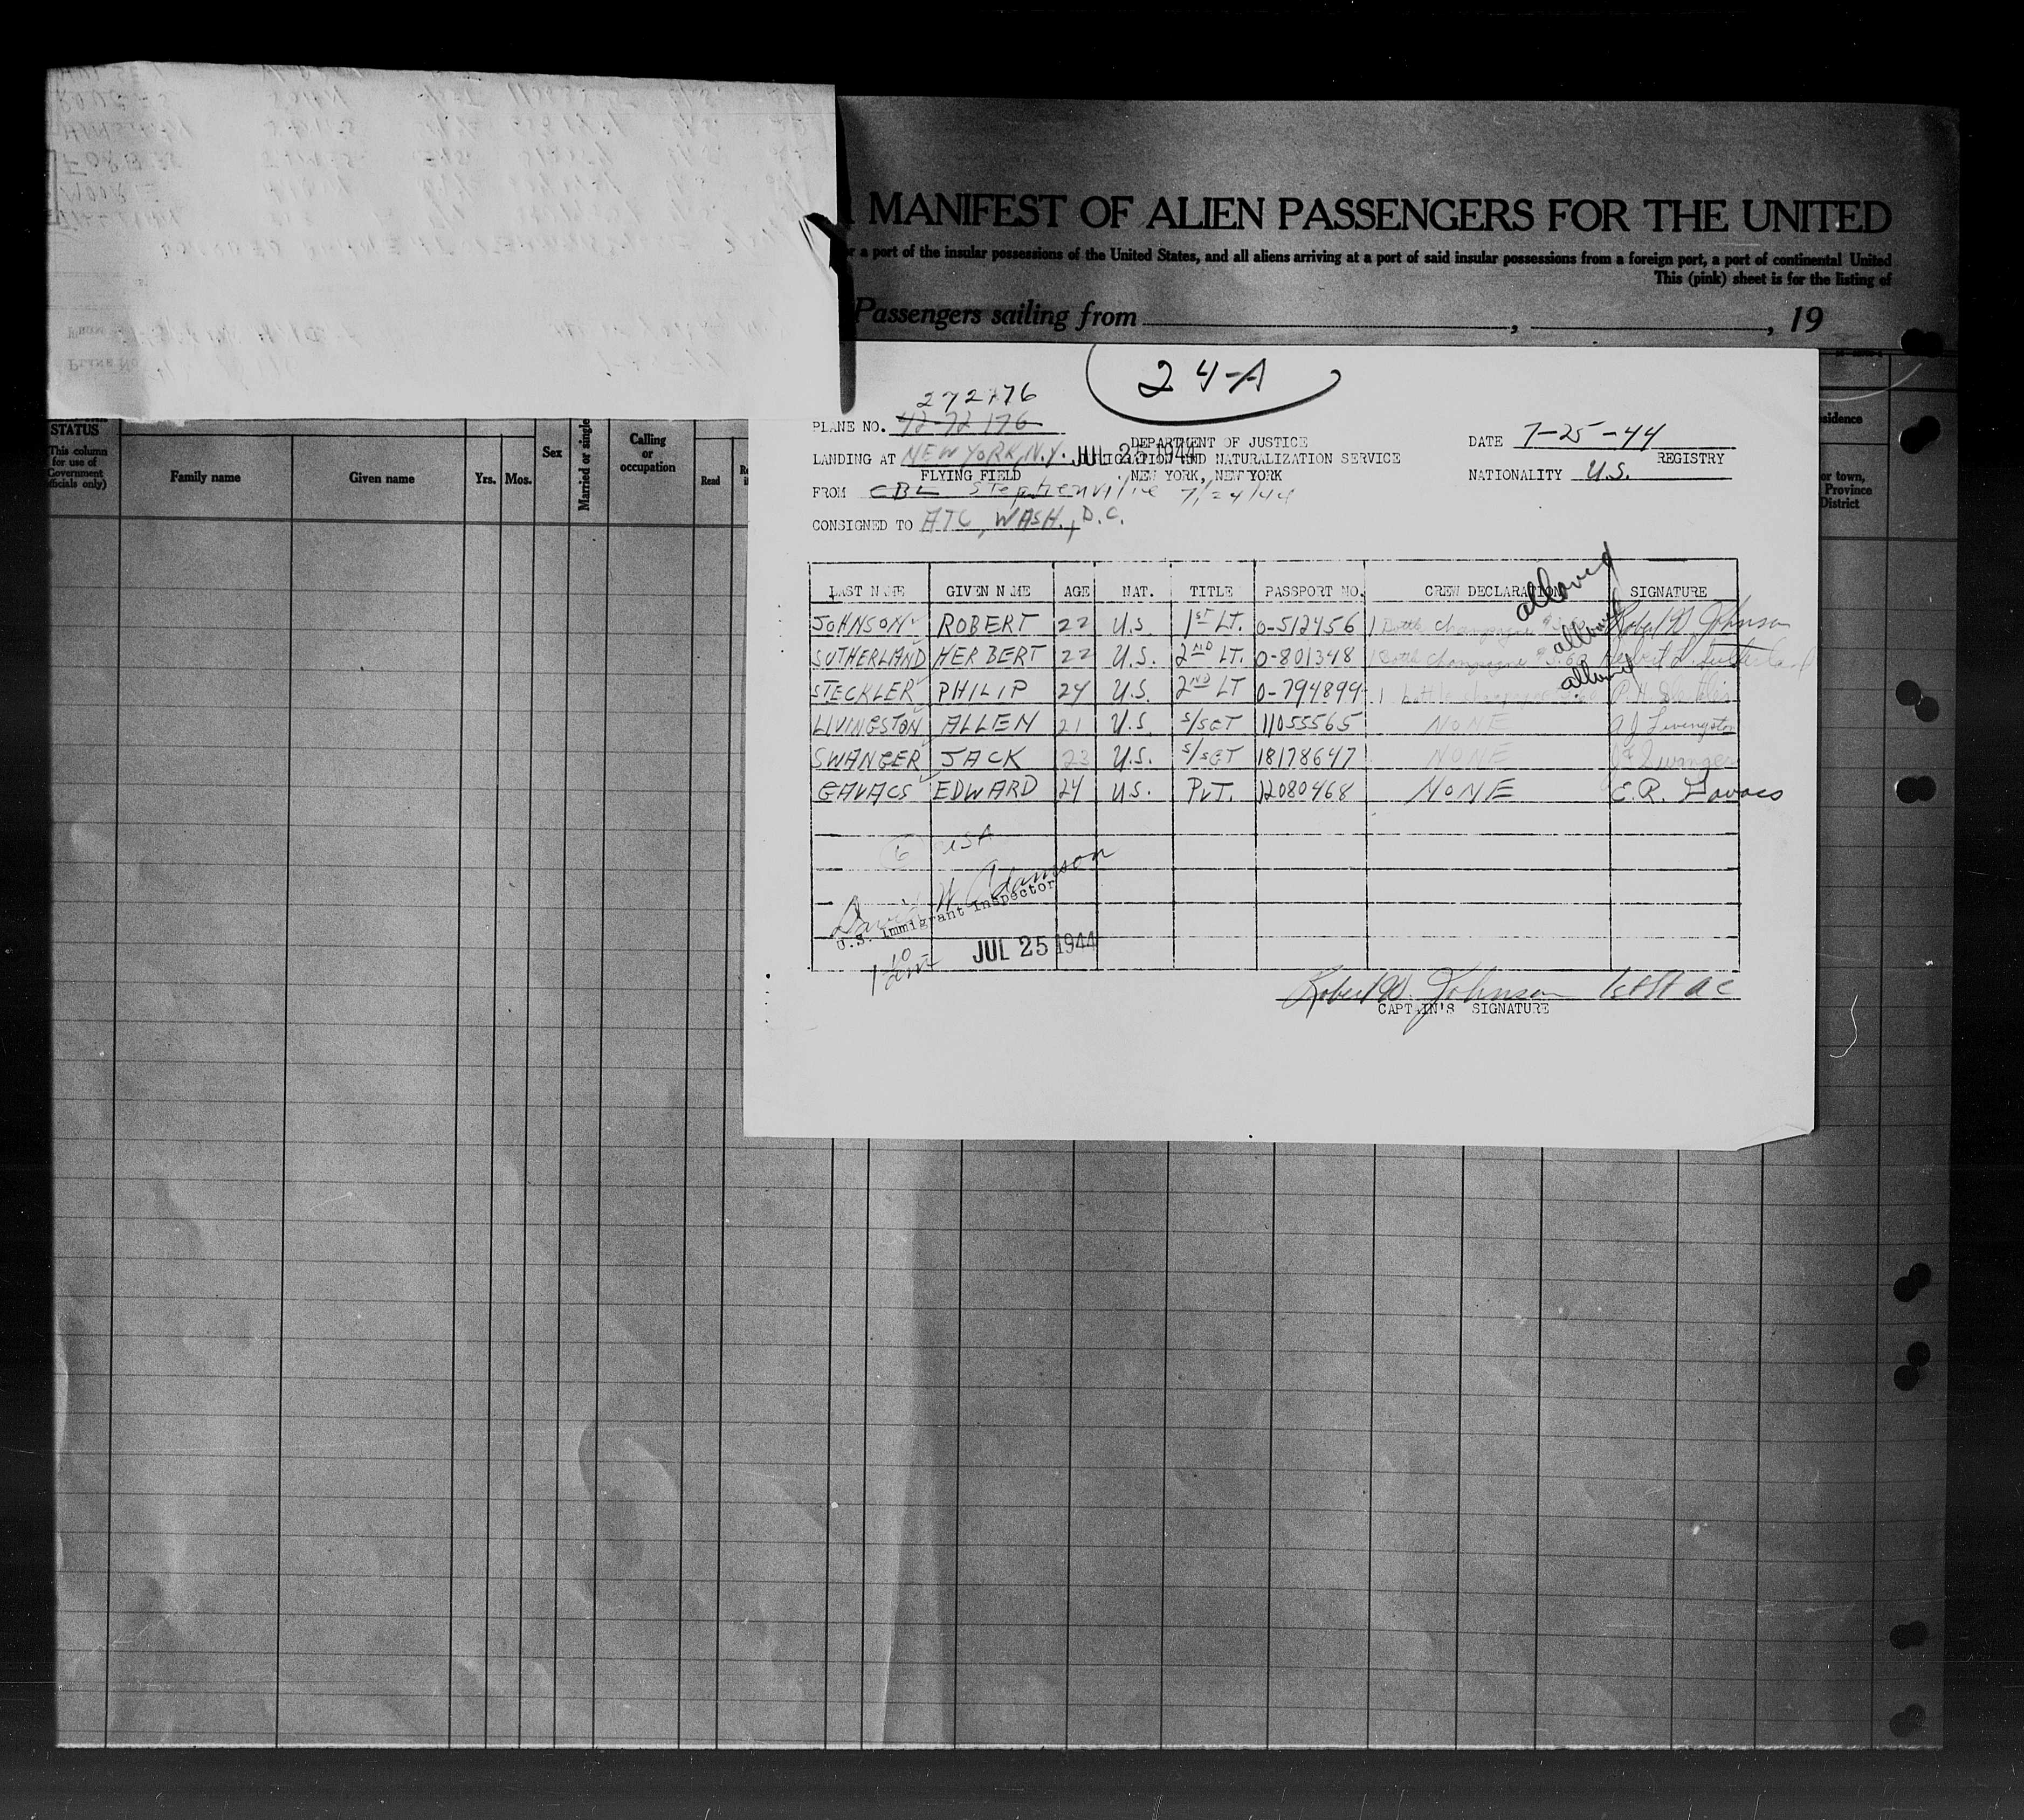 MANIFEST OF ALIEN PASSENGERS FOR THE UNITED
a port of the insular possessions of the United States, and all aliens arriving at a port of said insular possessions from a foreign port, a port of continental United
This (pink) sheet is for the listing of
Passengers sailing from , , 19
STATUS
This column
for use of
Government
officials only)
Family name
Given name
Yrs.
Mos.
Sex
Married or single
Calling
or
occupation
Read
or town,
Province
District
24-A
272776
PLANE NO. 42-72176
DEPARTMENT OF JUSTICE
DATE 7-25-44
LANDING AT NEW YORK, N.Y. JUL 25 1944 AND NATURALIZATION SERVICE
REGISTRY
FLYING FIELD
NEW YORK, NEW YORK
NATIONALITY U.S.
FROM CBL Stephenville 7/24/44
CONSIGNED TO ATC, WASH., D.C.
LAST NAME GIVEN NAME AGE NAT. TITLE PASSPORT NO. CREW DECLARATION SIGNATURE
JOHNSON ROBERT 22 U.S. 1ST LT. O-512456 1 Bottle Champagne allowed Robert W Johnson
SUTHERLAND HERBERT 22 U.S. 2ND LT. O-801348 1 Bottle Champagne allowed Herbert L. Sutherland
STECKLER PHILIP 24 U.S. 2ND LT O-794899 1 bottle champagne allowed
LIVINGSTON ALLEN 21 U.S. S/SGT 11055565 NONE A J Livingston
SWANGER JACK 23 U.S. S/SGT 18178647 NONE Swanger
GAVACS EDWARD 24 U.S. PVT. 12080468 NONE E.R. Gavacs
6 USA
David W Adamson
U.S. Immigrant Inspector
JUL 25 1944
Robert W. Johnson 1st Lt A C
CAPTAIN'S SIGNATURE